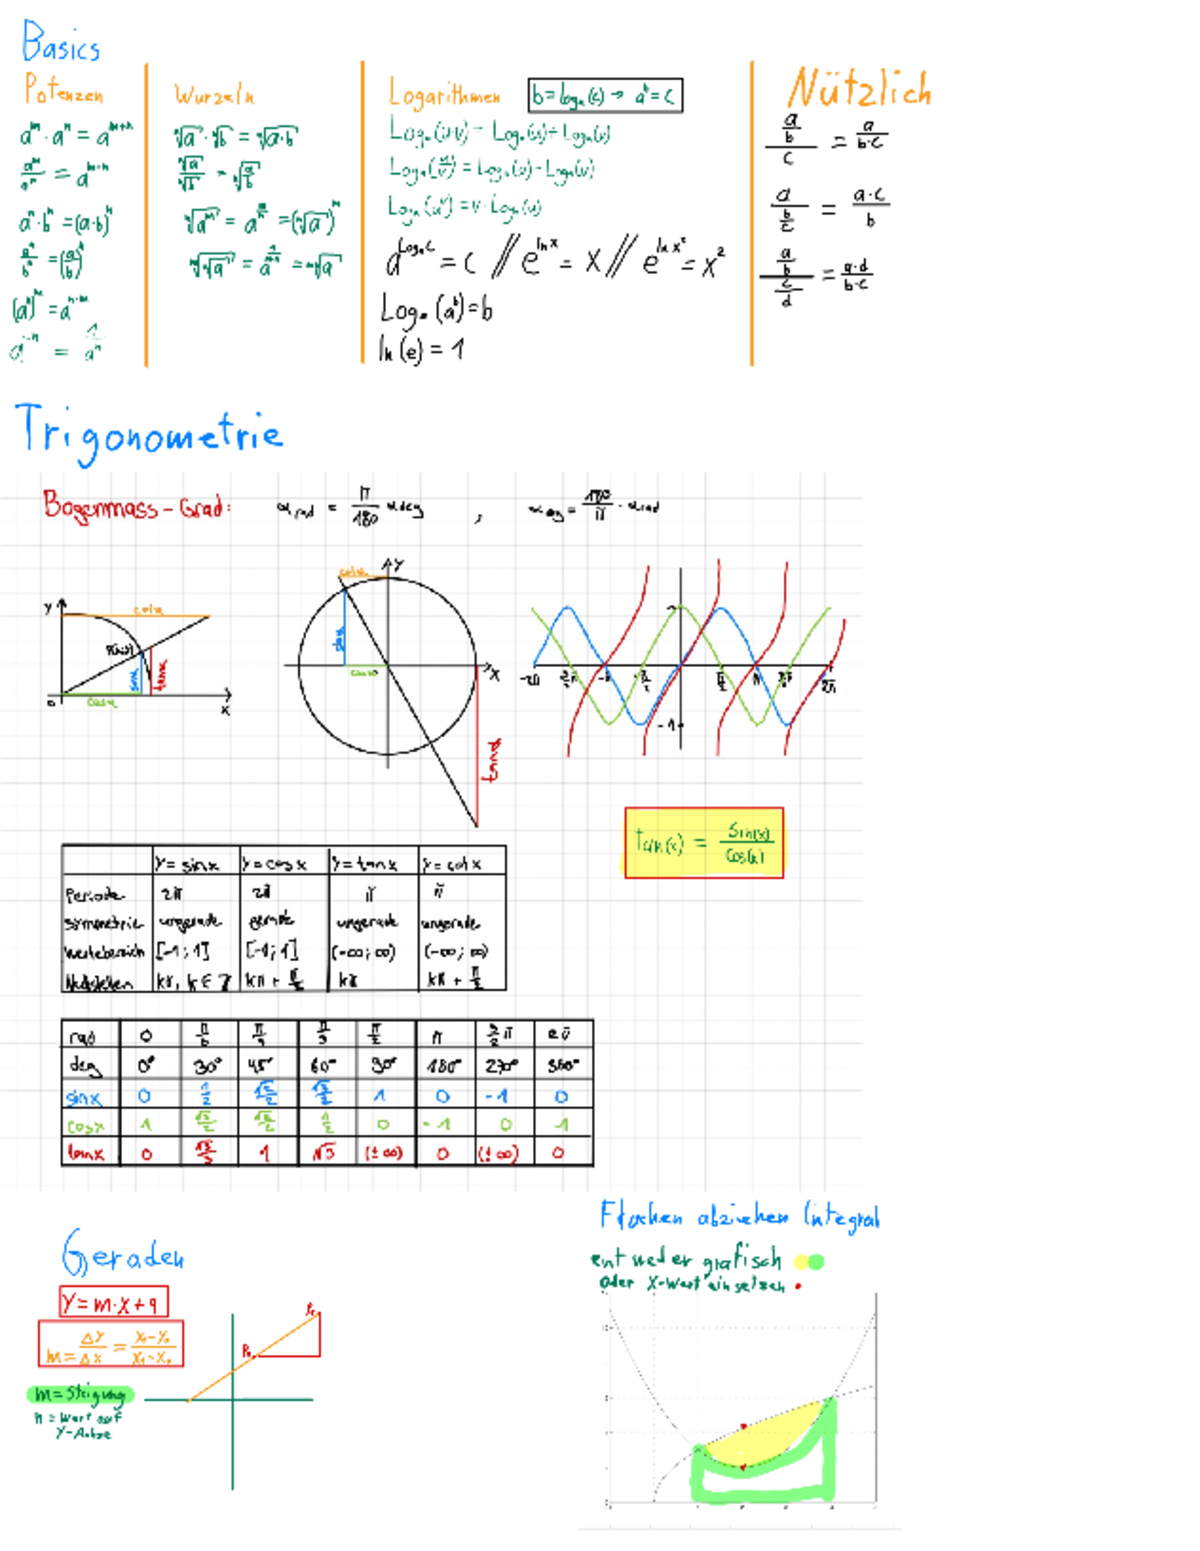 Basics
Potenzen
a^m · a^n = a^(m+n)
a^m/a^n = a^(m-n)
a^n · b^n = (a·b)^n
a^n/b^n = (a/b)^n
(a^n)^m = a^(n·m)
a^-n = 1/a^n
Wurzeln
ⁿ√a · ⁿ√b = ⁿ√(a·b)
ⁿ√a / ⁿ√b = ⁿ√(a/b)
ⁿ√(a^m) = a^(m/n) = (ⁿ√a)^m
Logarithmen
b = log_a(c) → a^b = c
Log_a(u·v) = Log_a(u) + Log_a(v)
Log_a(u/v) = Log_a(u) - Log_a(v)
Log_a(u^v) = v · Log_a(u)
a^(Log_a c) = c // e^(ln x) = x // e^(ln x²) = x²
Log_a(a^b) = b
ln(e) = 1
Nützlich
(a/b)/c = a/(b·c)
a/(b/c) = (a·c)/b
(a/b)/(c/d) = (a·d)/(b·c)
Trigonometrie
Bogenmass - Grad: α_rad = π/180 α_deg , α_deg = 180/π · α_rad
y cotα
sinα tanα
0 cosα x
cotα y
sinα cosα x
tanα
-2π -π π/2 π 2π
-1
tan(x) = sin(x)/cos(x)
y = sin x y = cos x y = tan x y = cot x
Periode 2π 2π π π
Symmetrie ungerade gerade ungerade ungerade
Wertebereich [-1;1] [-1;1] (-∞;∞) (-∞;∞)
Nullstellen kπ, k∈Z kπ + π/2 kπ kπ + π/2
rad 0 π/6 π/4 π/3 π/2 π 3/2 π 2π
deg 0° 30° 45° 60° 90° 180° 270° 360°
sinx 0 1/2 √2/2 √3/2 1 0 -1 0
cosx 1 √3/2 √2/2 1/2 0 -1 0 1
tanx 0 √3/3 1 √3 (±∞) 0 (±∞) 0
Geraden
y = m·x + q
m = Δy/Δx
m = Steigung
n = Wert auf
Y-Achse
Flächen abziehen Integral
entweder grafisch
oder X-Wert einsetzen